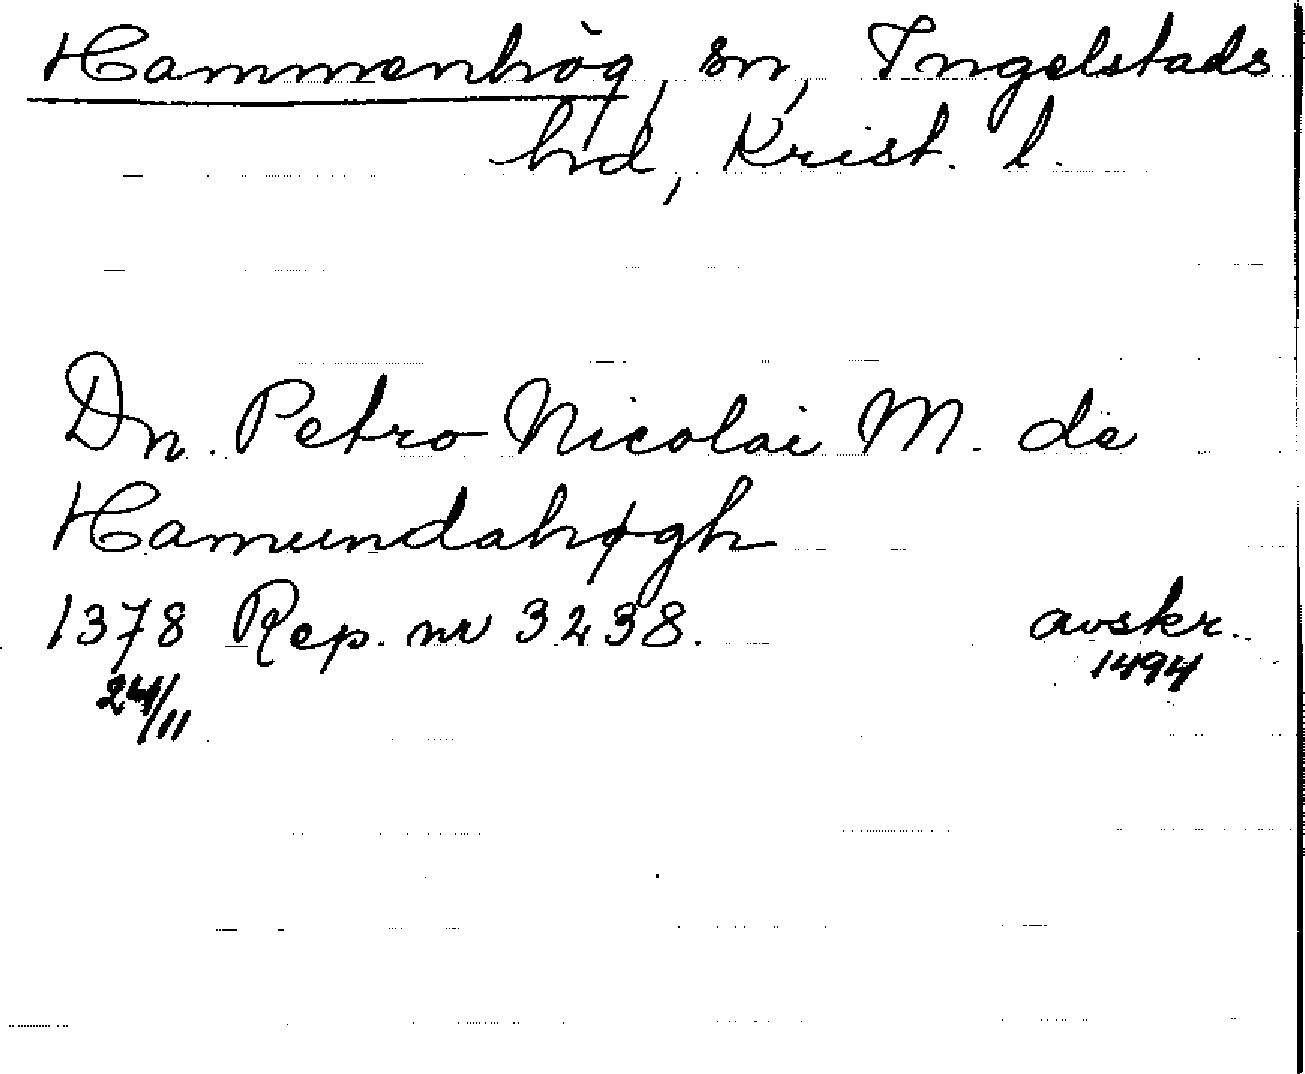 Hammenhög, sn, Ingelstads
hd, Krist. l.
Dn. Petro Nicolai M. de
Hamundahøgh
1378 Rep. nr 3238. avskr.
24/11 1494